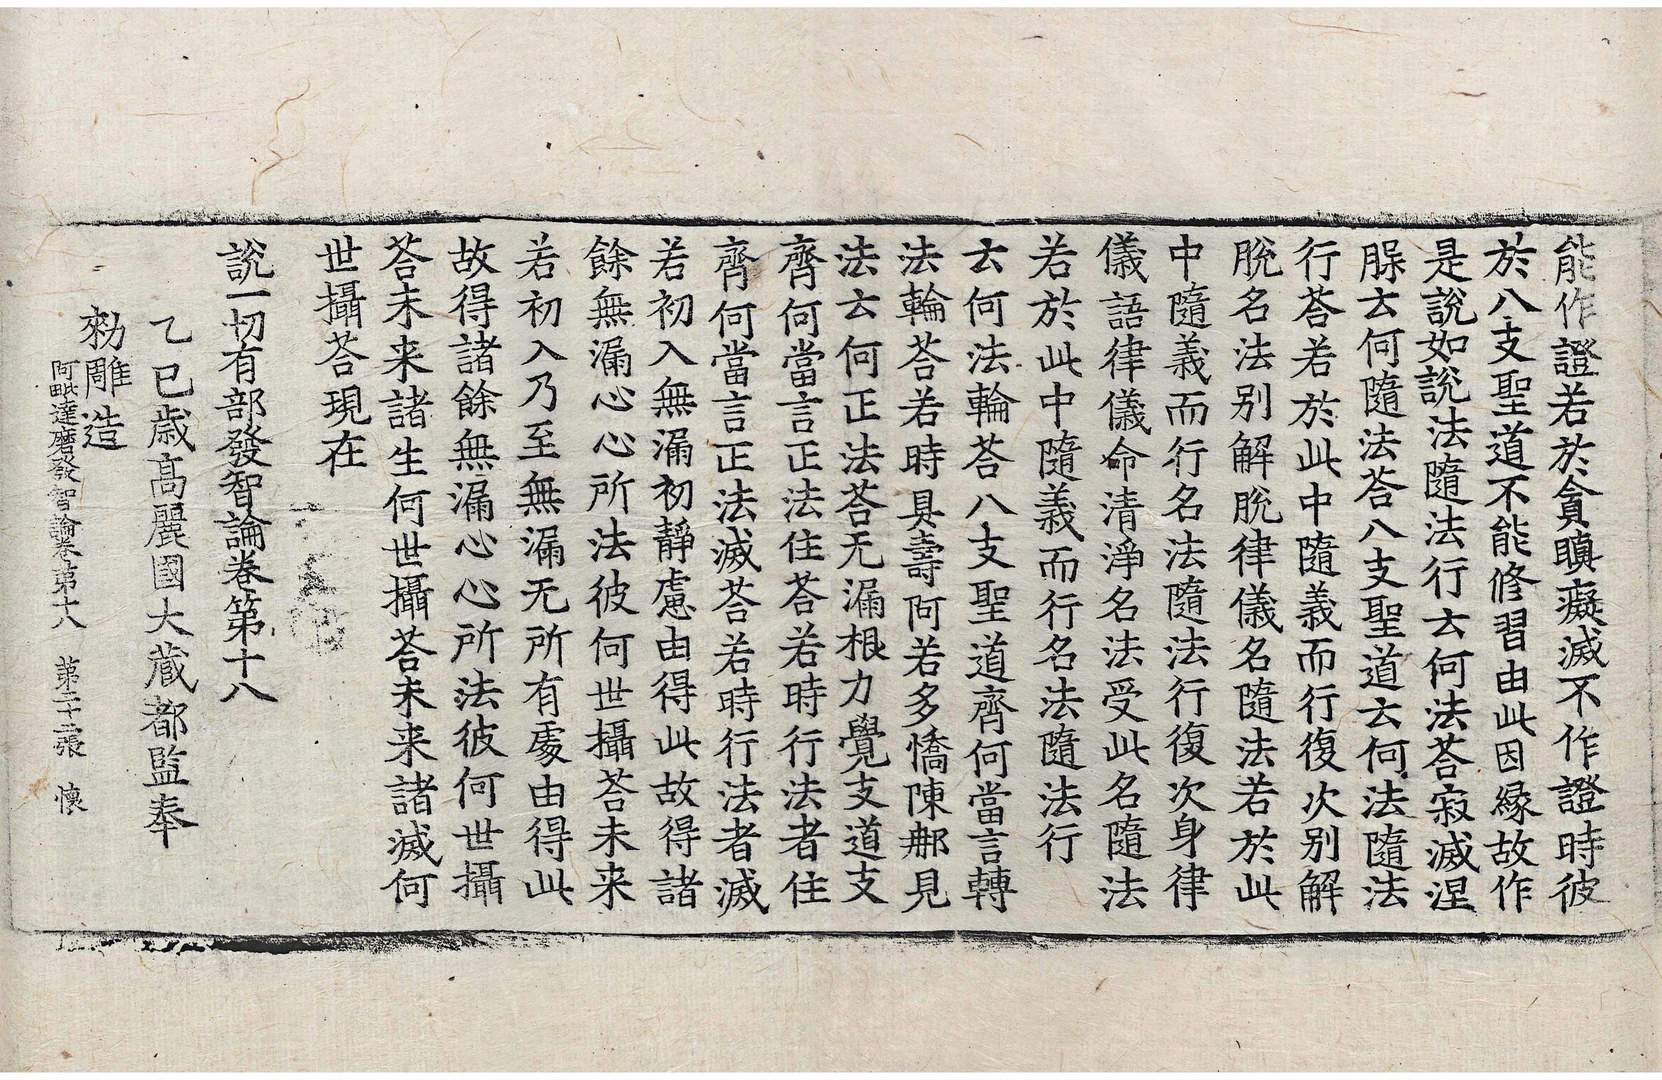 能作證若於貪瞋癡滅不作證時彼
於八支聖道不能修習由此因縁故作
是說如說法隨法行云何法荅寂滅涅
槃云何隨法荅八支聖道云何法隨法
行荅若於此中隨義而行復次别解
脫名法别解脫律儀名隨法若於此
中隨義而行名法隨法行復次身律
儀語律儀命清淨名法受此名隨法
若於此中隨義而行名法隨法行
云何法輪荅八支聖道齊何當言轉
法輪荅若時具壽阿若多憍陳那見
法云何正法荅无漏根力覺支道支
齊何當言正法住荅若時行法者住
齊何當言正法滅荅若時行法者滅
若初入無漏初靜慮由得此故得諸
餘無漏心心所法彼何世攝荅未来
若初入乃至無漏无所有處由得此
故得諸餘無漏心心所法彼何世攝
荅未来諸生何世攝荅未来諸滅何
世攝荅現在
說一切有部發智論卷第十八
乙巳歳高麗國大藏都監奉
勑雕造
阿毗達磨發智論卷第十八 第二十三張 懷